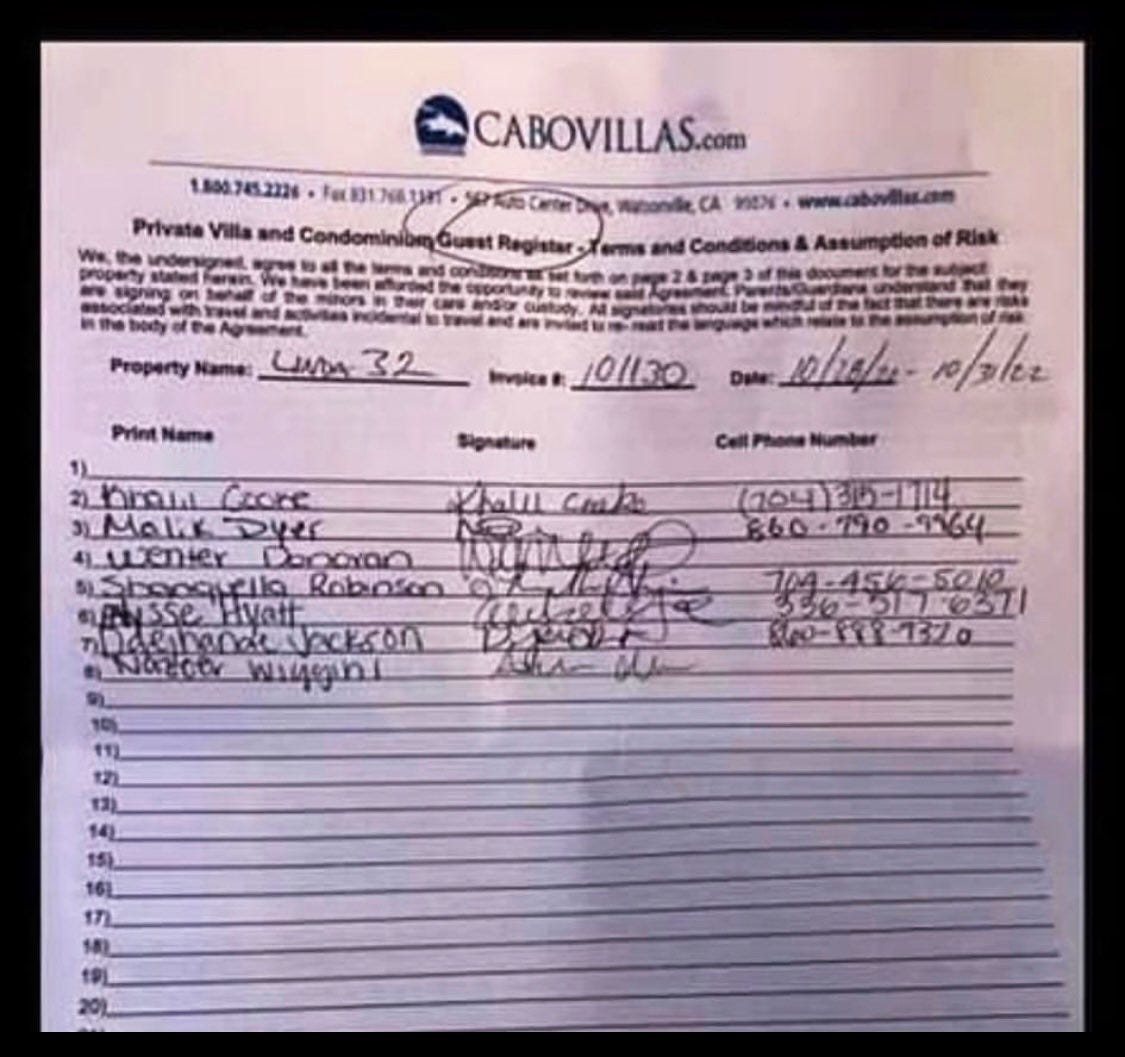 CABOVILLAS.com
1.800.745.2226 • Fax 831.768.1191 • 567 Auto Center Drive, Watsonville, CA 95076 • www.cabovillas.com
Private Villa and Condominium Guest Register - Terms and Conditions & Assumption of Risk
We, the undersigned, agree to all the terms and conditions as set forth on page 2 & page 3 of this document for the subject
property stated herein. We have been afforded the opportunity to review said Agreement. Parents/Guardians understand that they
are signing on behalf of the minors in their care and/or custody. All signatories should be mindful of the fact that there are risks
associated with travel and activities incidental to travel and are invited to re-read the language which relate to the assumption of risk
in the body of the Agreement.
Property Name: 32 Invoice #: 101130 Date: 10/28/22 - 10/31/22
Print Name Signature Cell Phone Number
1)
2) Khalil Cooke Khalil Cooke (704) 315-1714
3) Malik Dyer 860-790-9964
4) Wenter Donovan
5) Shanquella Robinson 704-456-5010
6) Alysse Hyatt 336-517-6371
7) Ddejhanae Jackson 860-888-9370
8) Nazeer Wiggins
9)
10)
11)
12)
13)
14)
15)
16)
17)
18)
19)
20)